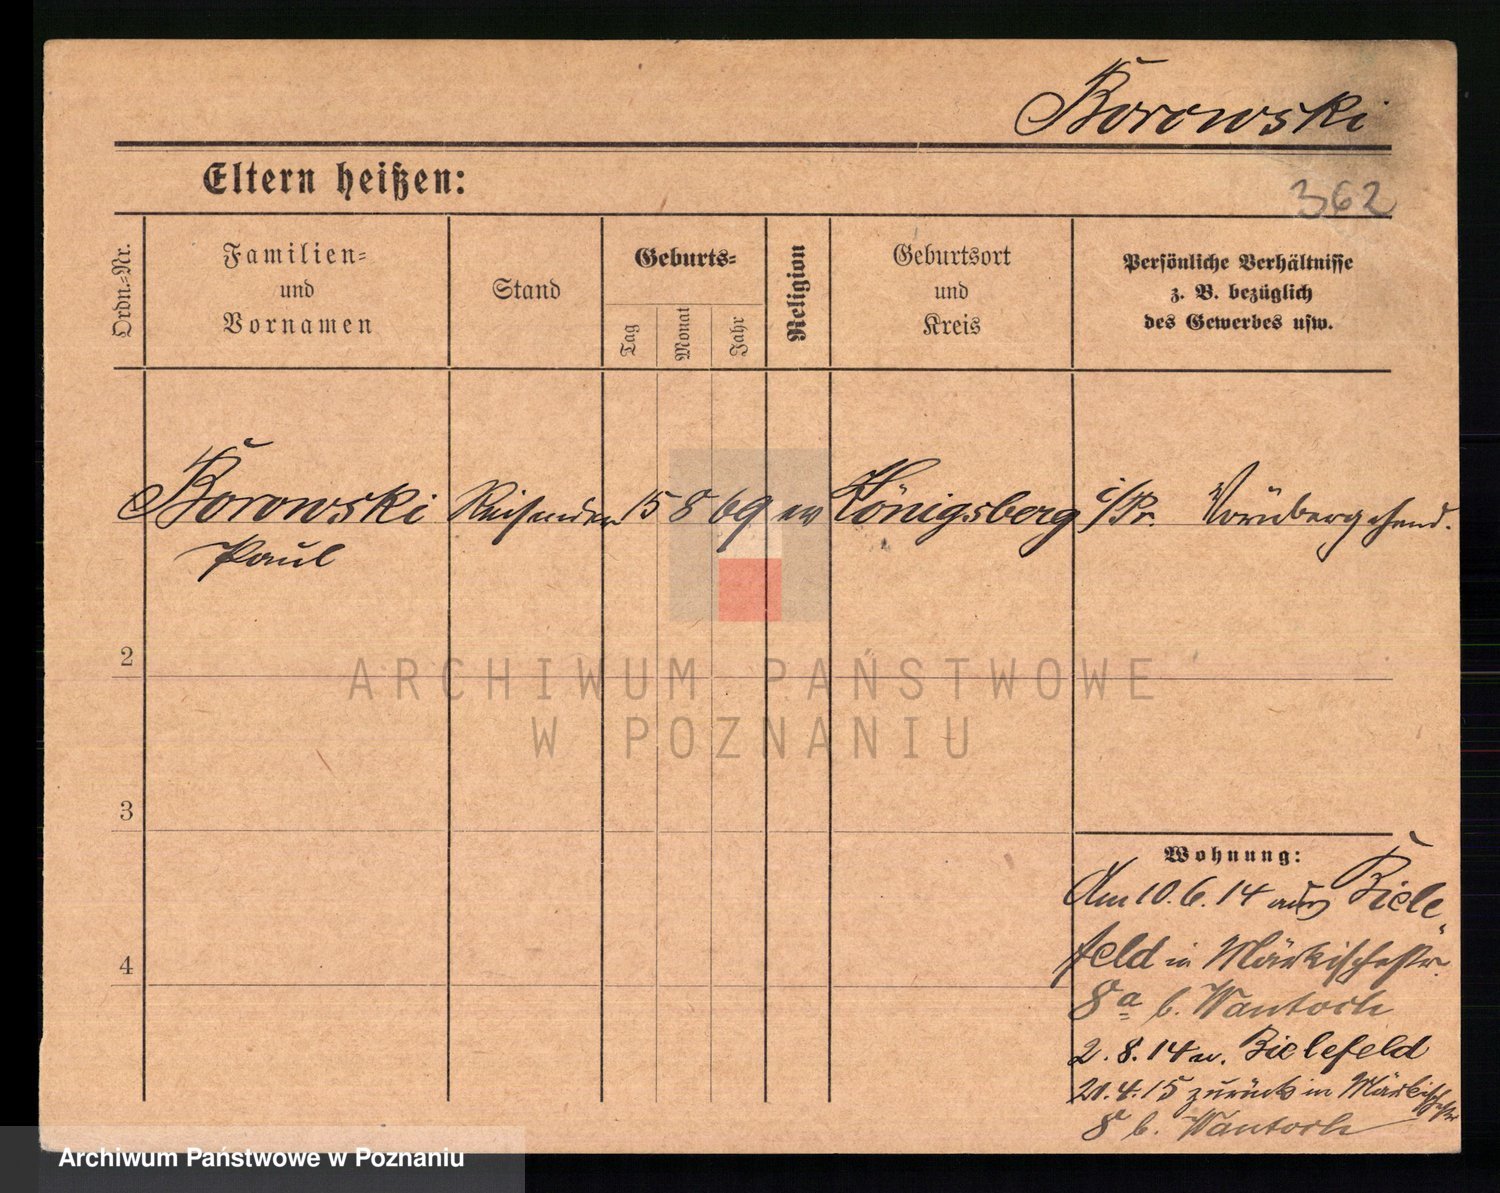 Borowski
Eltern heißen:
362
Ordn.-Nr.
Familien-
und
Vornamen
Stand
Geburts-
Tag
Monat
Jahr
Religion
Geburtsort
und
Kreis
Persönliche Verhältnisse
z. B. bezüglich
des Gewerbes usw.
Borowski Reisender 15 8 69 ev Königsberg i/Pr. Vorübergehend.
Paul
2
3
4
Wohnung:
Am 10.6.14 aus Biele-
feld in Märkischestr.
8a b. Wantoch
2.8.14 n. Bielefeld
20.4.15 zurück in Märkischestr
8 b. Wantoch
ARCHIWUM PAŃSTWOWE
W POZNANIU
Archiwum Państwowe w Poznaniu